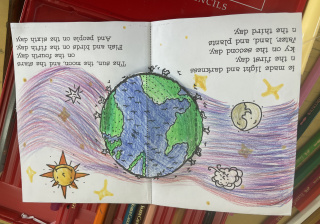 NCILS
He made light and darkness
On the first day.
Sky on the second day,
Water, land, and plants
On the third day.
The sun, the moon, and the stars
on the fourth day.
Fish and birds on the fifth day.
And people on the sixth day.